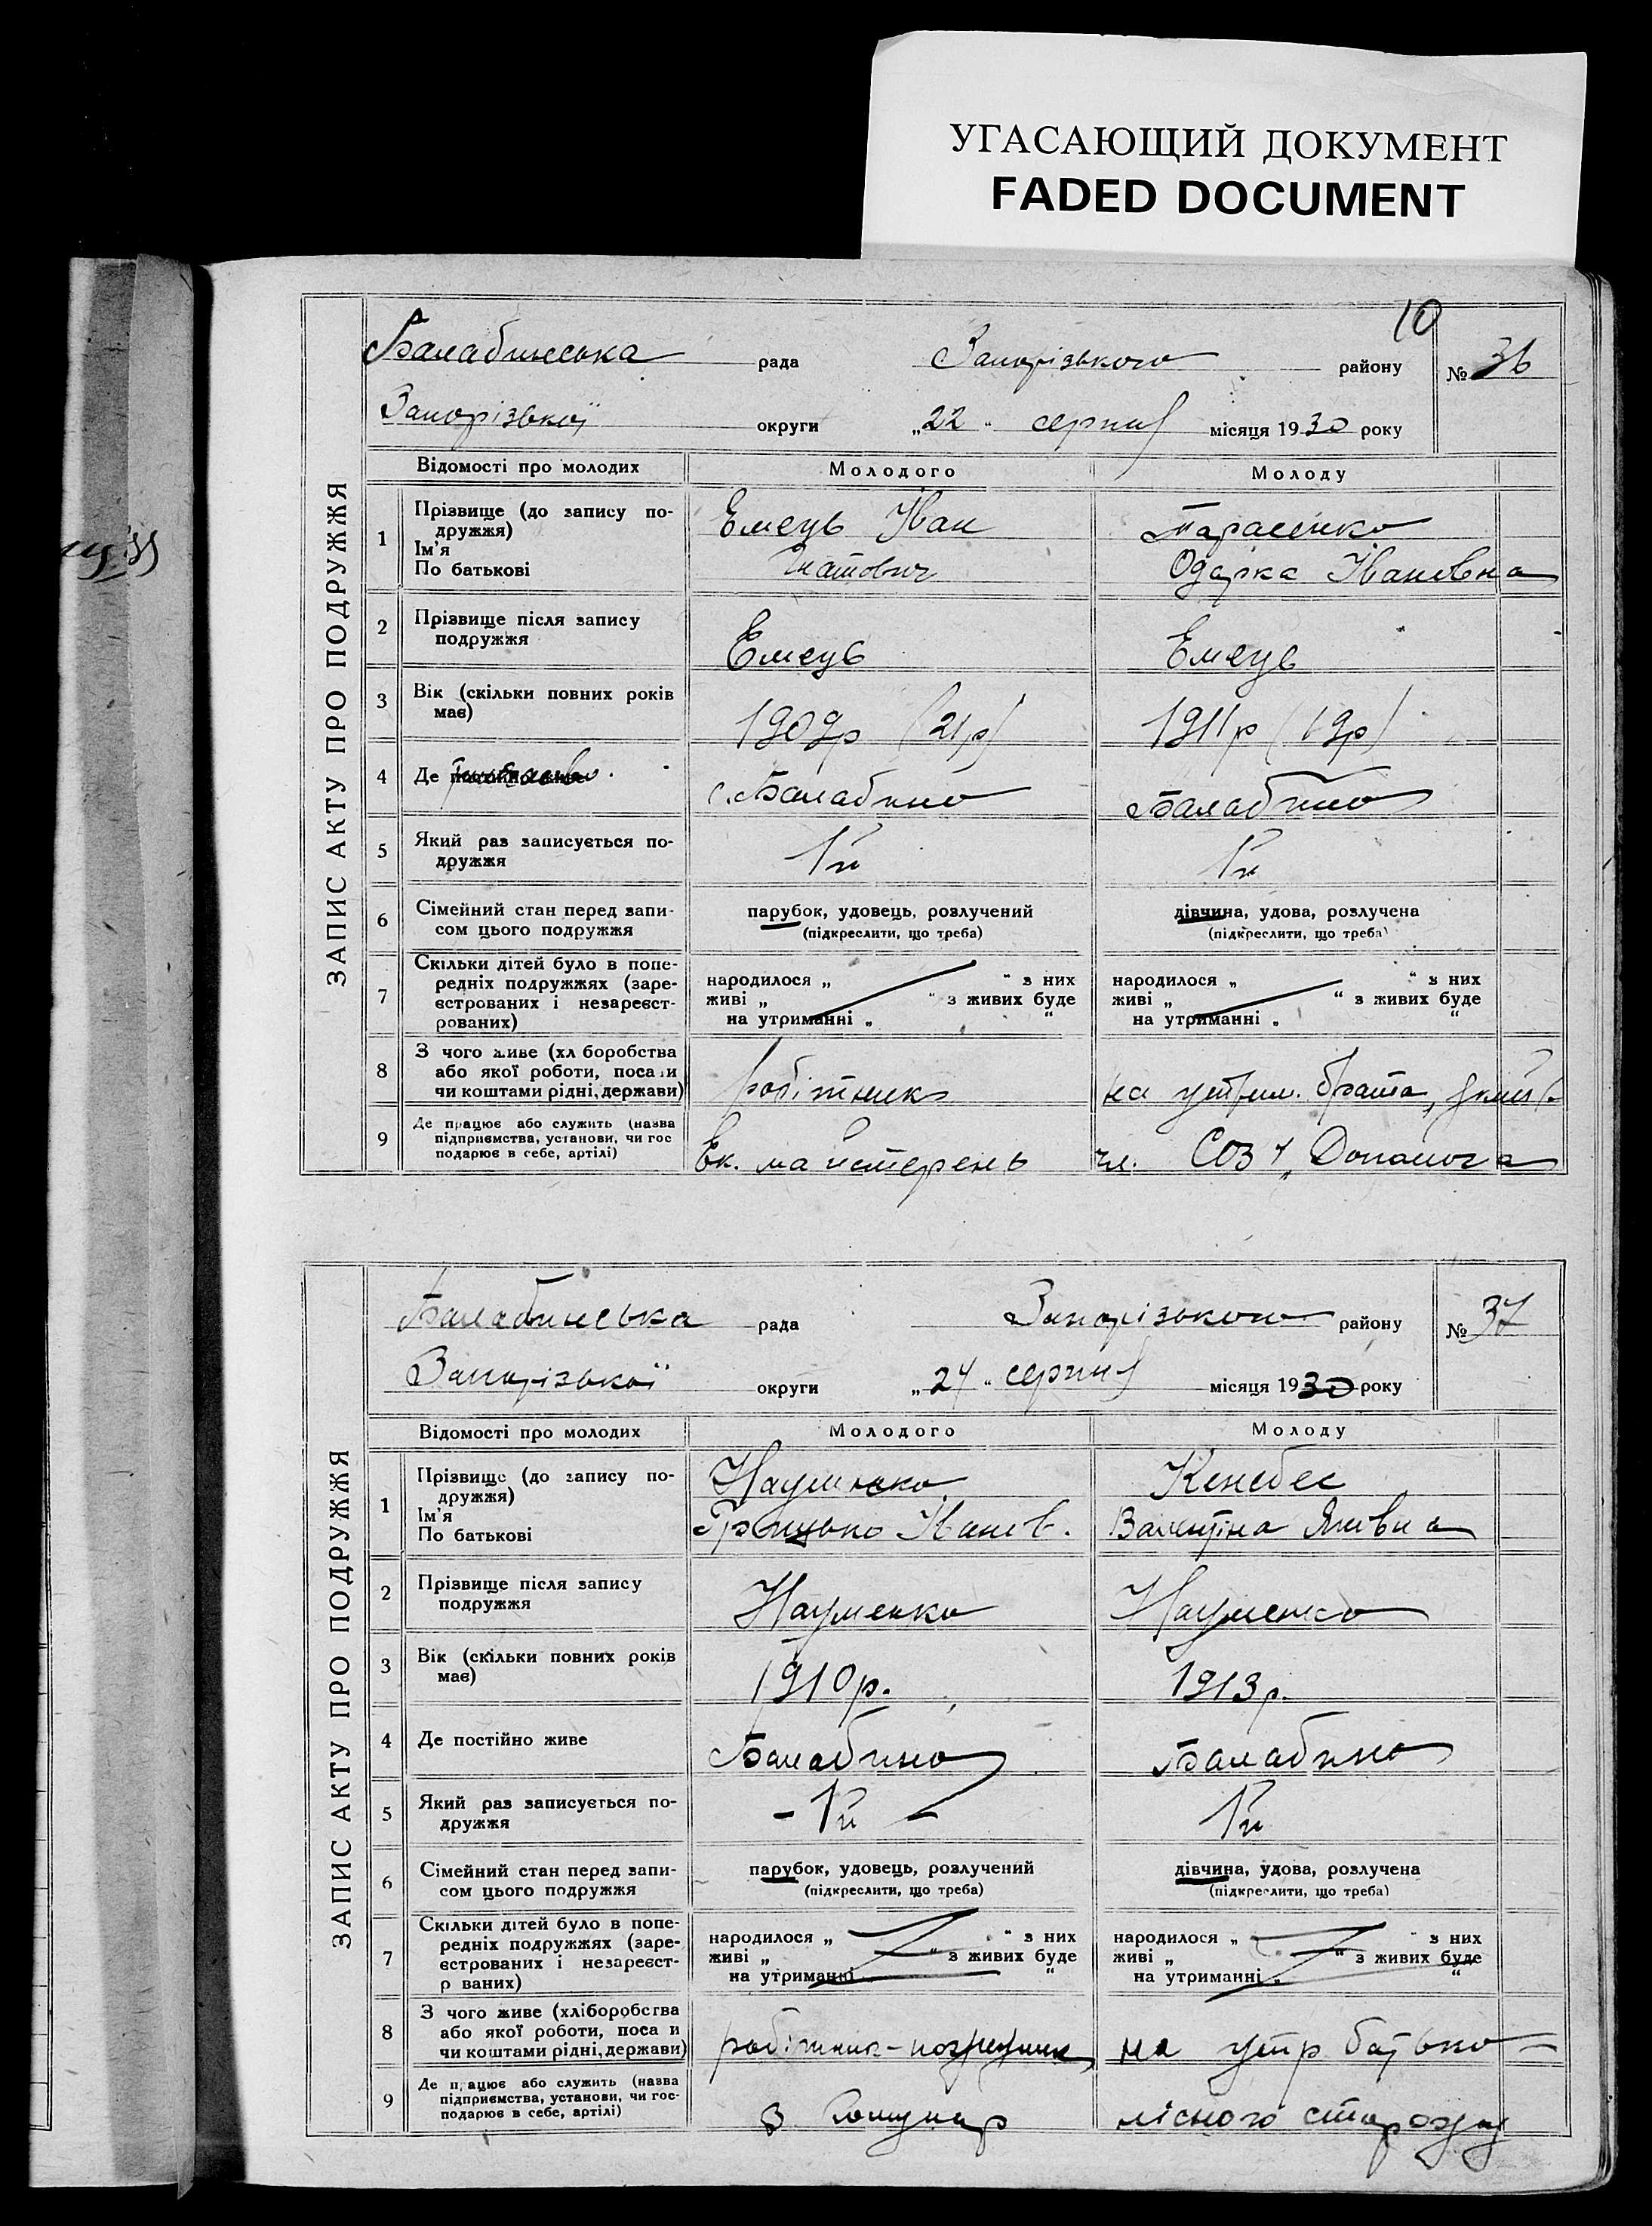 УГАСАЮЩИЙ ДОКУМЕНТ
FADED DOCUMENT
10
Балабинська рада Запорізького району № 36
Запорізької округи „22“ серпня місяця 1930 року
ЗАПИС АКТУ ПРО ПОДРУЖЖЯ
Відомості про молодих Молодого Молоду
1 Прізвище (до запису по-
дружжя)
Ім'я
По батькові
Емець Іван
Гнатович
Тарасенко
Одарка Івановна
2 Прізвище після запису
подружжя
Емець
Емець
3 Вік (скільки повних років
має)
1909р (21р)
1911р (19р)
4 Де
с. Балабино
Балабино
5 Який раз записується по-
дружжя
1й
1й
6 Сімейний стан перед запи-
сом цього подружжя
парубок, удовець, розлучений
(підкреслити, що треба)
дівчина, удова, розлучена
(підкреслити, що треба)
7 Скільки дітей було в попе-
редніх подружжях (заре-
єстрованих і незареєст-
рованих)
народилося „ “ з них
живі „ “ з живих буде
на утриманні „ “
народилося „ “ з них
живі „ “ з живих буде
на утриманні „ “
8 З чого живе (хл боробства
або якої роботи, поса и
чи коштами рідні, держави)
робітник
на утрим. брата,
9 Де працює або служить (назва
підприємства, установи, чи гос
подарює в себе, артілі)
Вк. майстерень
чл. СОЗ „Допомога
Балабинська рада Запорізького району № 37
Запорізької округи „24“ серпня місяця 1930 року
ЗАПИС АКТУ ПРО ПОДРУЖЖЯ
Відомості про молодих Молодого Молоду
1 Прізвище (до запису по-
дружжя)
Ім'я
По батькові
Науменко
Грицько Іванов.
Кенебес
Валентіна Яківна
2 Прізвище після запису
подружжя
Науменко
Науменко
3 Вік (скільки повних років
має)
1910р.
1913р.
4 Де постійно живе
Балабино
Балабино
5 Який раз записується по-
дружжя
- 1й -
1й
6 Сімейний стан перед запи-
сом цього подружжя
парубок, удовець, розлучений
(підкреслити, що треба)
дівчина, удова, розлучена
(підкреслити, що треба)
7 Скільки дітей було в попе-
редніх подружжях (заре-
єстрованих і незареєст-
р ваних)
народилося „ “ з них
живі „ “ з живих буде
на утриманні „ “
народилося „ “ з них
живі „ “ з живих буде
на утриманні „ “
8 З чого живе (хліборобства
або якої роботи, поса и
чи коштами рідні, держави)
робітник-
на утр батько
9 Де працює або служить (назва
підприємства, установи, чи гос-
подарює в себе, артілі)
В
лісного сторожа